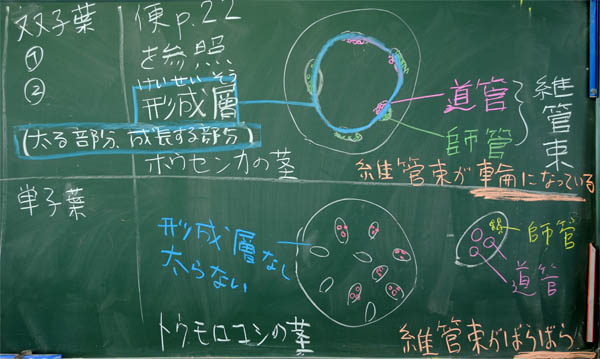 双子葉
①
②
便p.22
を参照
けいせいそう
形成層
(太る部分、成長する部分)
ホウセンカの茎
道管
師管
維管束
維管束が輪になっている
単子葉
形成層なし
太らない
トウモロコシの茎
師管
道管
維管束がばらばら